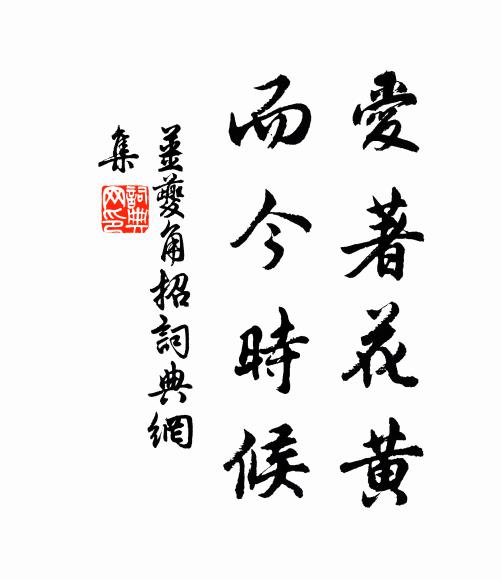 愛著花黄
而今時候
姜夔角招詞典網
集
詞典
网印